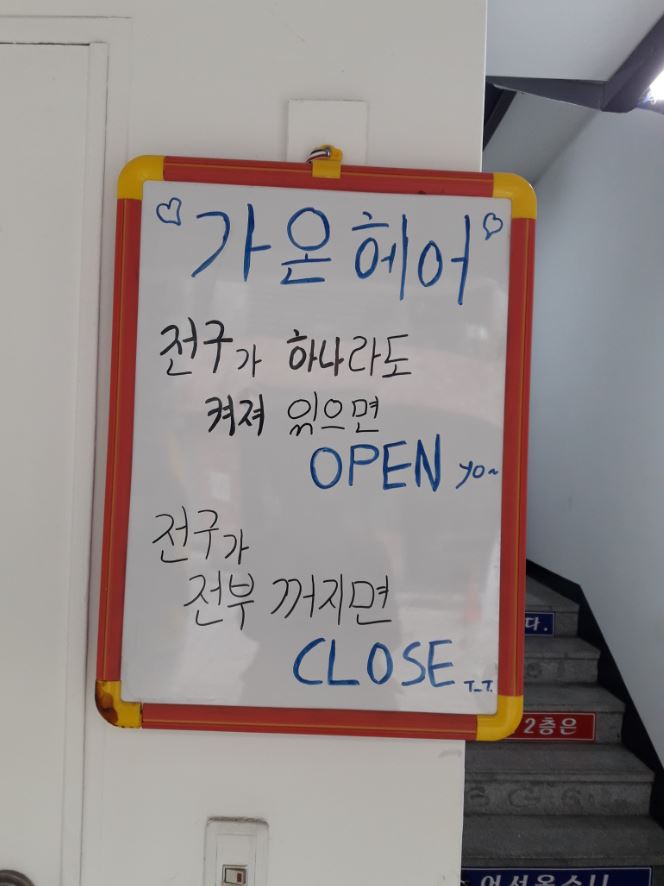 ♡가온헤어♡
전구가 하나라도
켜져 있으면
OPEN yo~
전구가
전부 꺼지면
CLOSE T_T.
다.
2층은